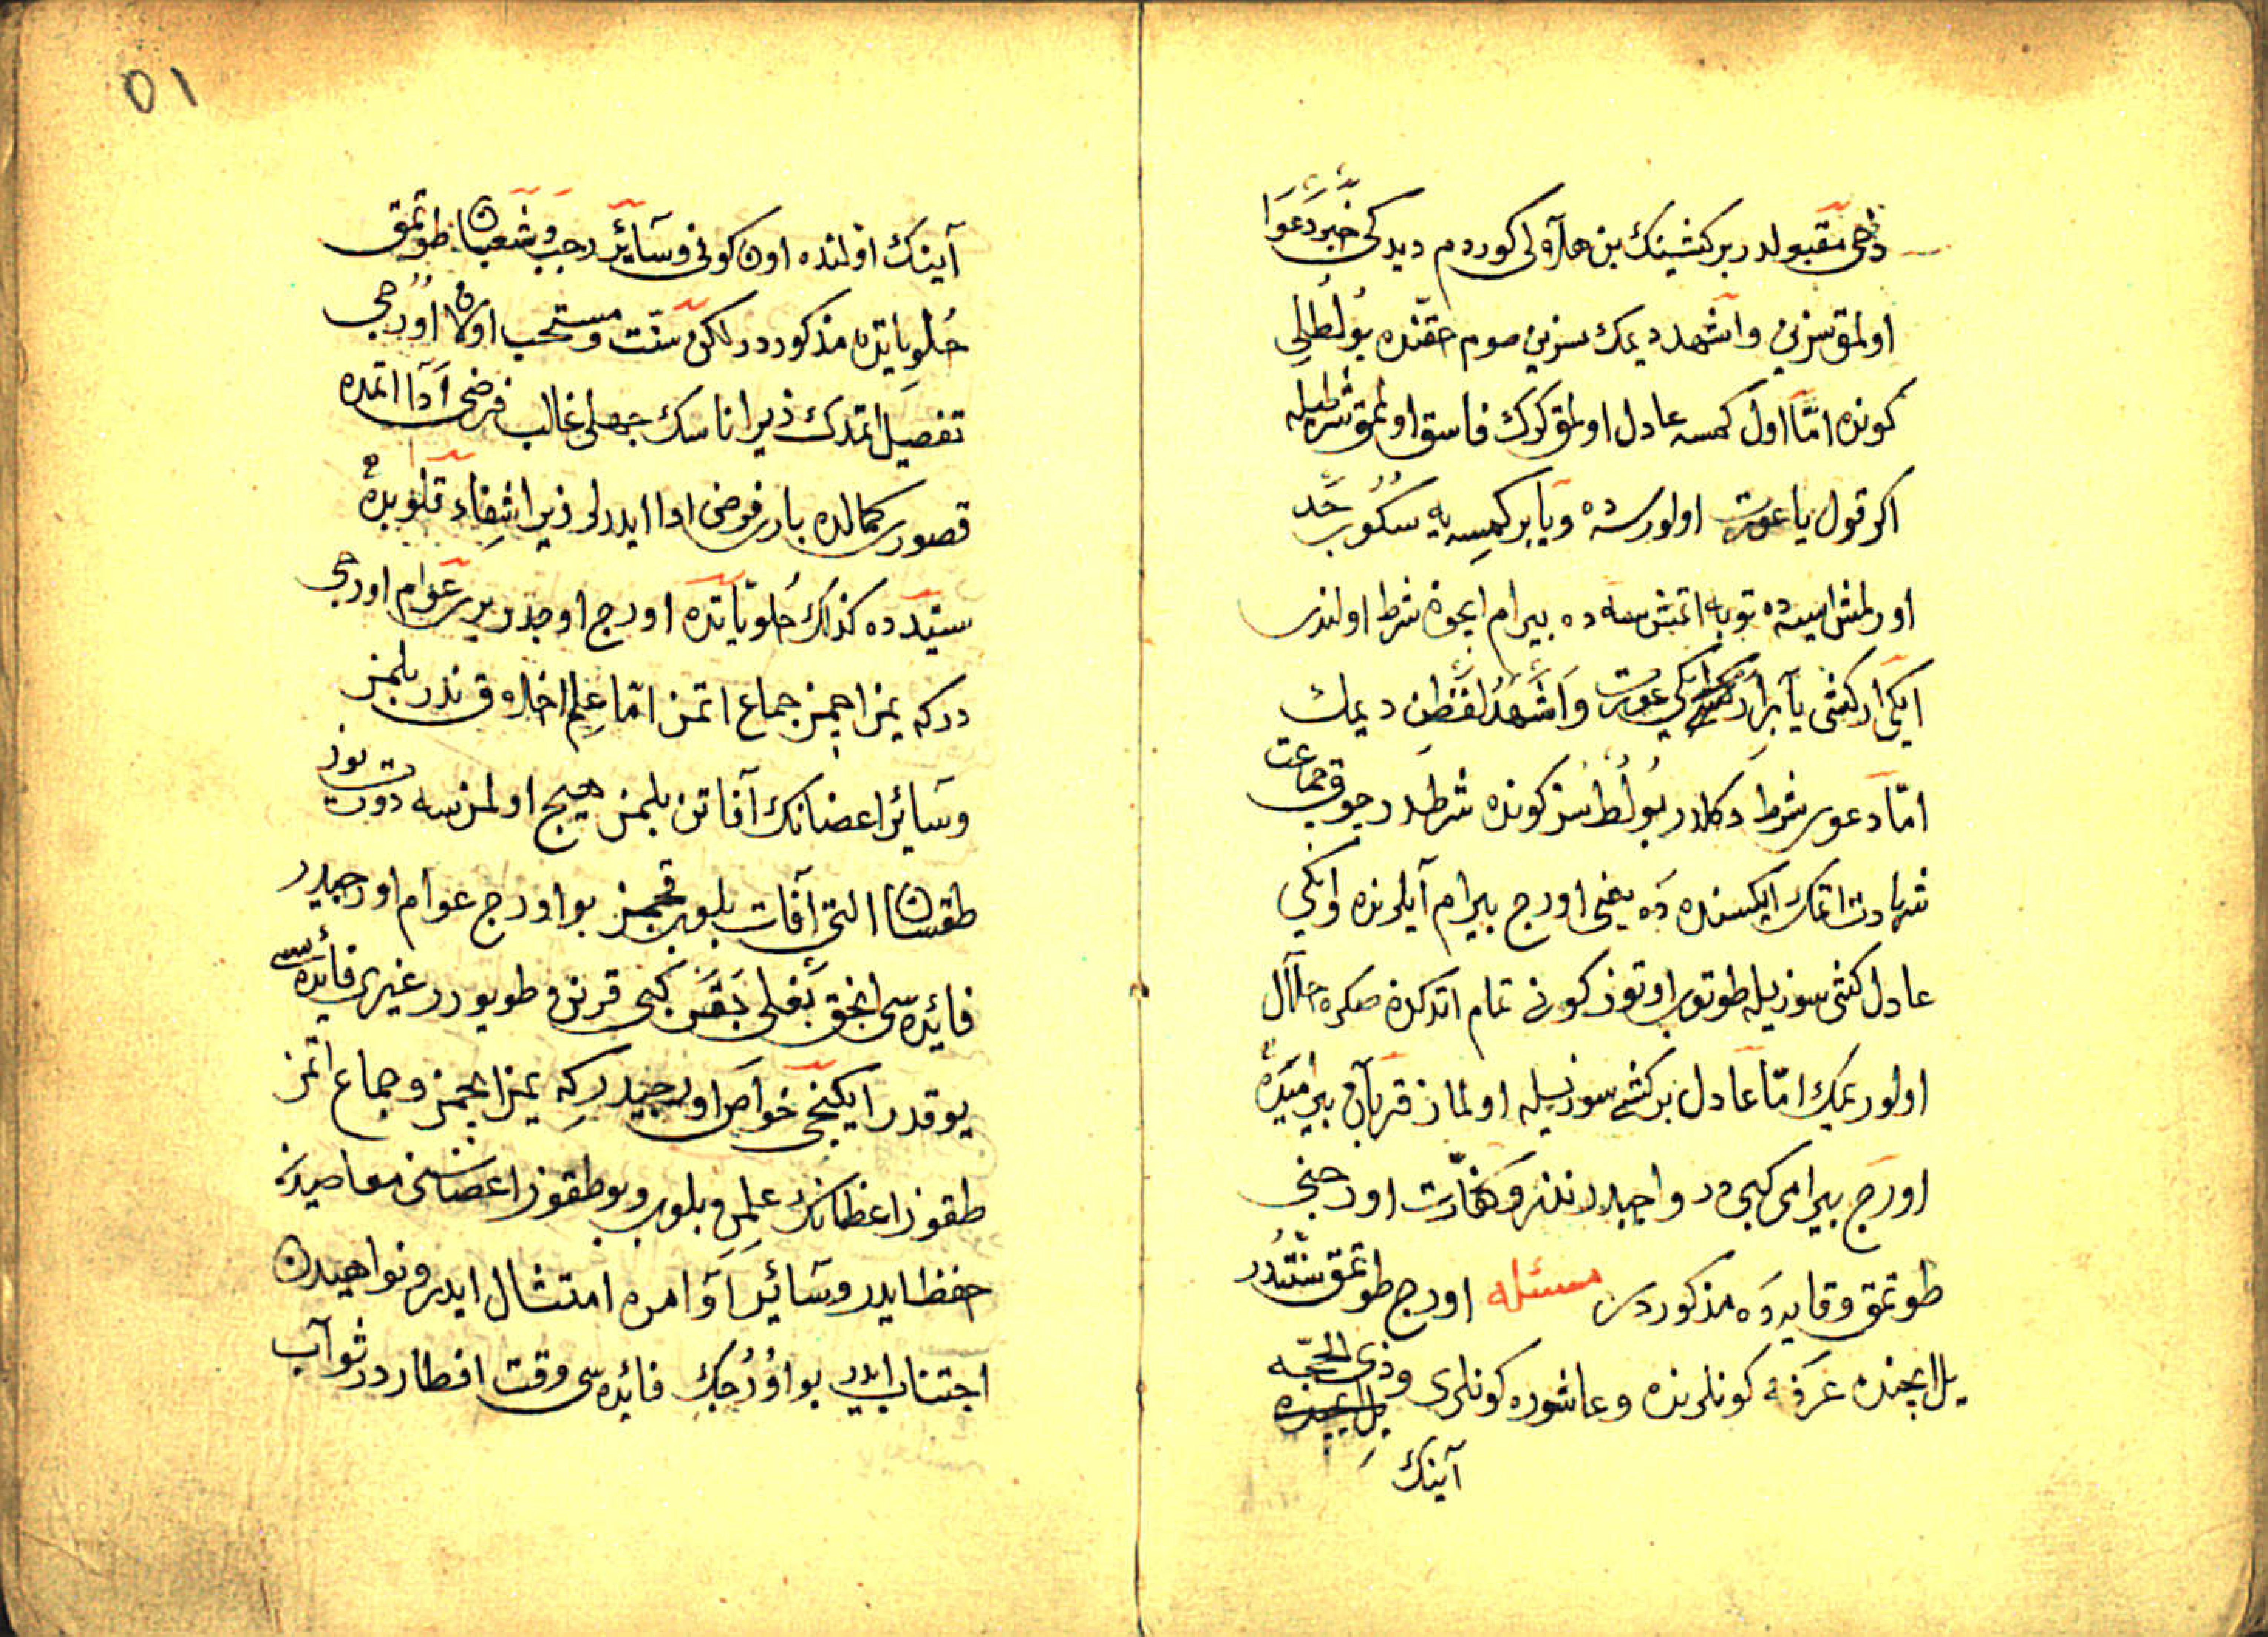 دخی مقبولدر بر کشینک بن هلالی کوردم دیدکی خبر دعوا
اولمق سزین واشهد دیمک سزین صوم حقنده بولطلی
کونده امّا اول کمسه عادل اولمق کرک فاسق اولمق شرطیله
اکر قول یا عورت اولورسه ده ویا بر کمسه یه سکوب حد
اورلمش ایسه ده توبه اتمش سه ده بیرام ایچون شرط اولندی
ایکی ار کشی یا بر ار ایکی عورت واشهد لفظن دیمک
امّا دعوی شرط دکلدر بولطسز کونده شرطدر چوق جماعت
شهادت اتمک ایکسنده ده یعنی اورج بیرام آیلرنده وایکی
عادل کشی سوزیله طوتوب اوتوز کونی تمام اتدکدن صکره حلال
اولور یمک امّا عادل بر کشی سوزیله اولماز قربان بیرامیده
اورج بیرامی کبی در واجبدر نذر وکفارت اورجنی
طوتمق وقایه ده مذکوردر مسئله اورج طوتمق سنتدر
یل ایچنده عرفه کونلرنده وعاشوره کونلری وذی الحجّه
آینک
٥١
آینک اولنده اون کونی وسائر رجب وشعبان طوتمق
حلویاتده مذکوردر لکن سنّت ومستحب اولان اورجی
تفصیل اتمدک زیرا ناسک جهلی غالب فرضی ادا اتمده
قصوری کمالده باری فرضی ادا ایدرلر زیرا شفاء قلوبده
سیّدده کذلک حلویاتده اورج اوچدر بری عوام اورجی
درکه یمز ایچمز جماع اتمز امّا علم اخلاق ندر بلمز
وسائر اعضانک آفاتن بلمز هیچ اولمزسه دورت یوز
طقسان التی آفات بلوب قچمز بو اورج عوام اورجیدر
فائده سی انجق بغلی بقر کبی قرنن طویورر غیری فائده سی
یوقدر ایکنجی خواص اورجیدر که یمز ایچمز وجماع اتمز
طقوز اعظانک علمن بلوب وبو طقوز اعضاسنی معاصیدن
حفظ ایدر وسائر اوامره امتثال ایدر ونواهیدن
اجتناب ایدر بو اورجک فائده سی وقت افطاردر ثواب